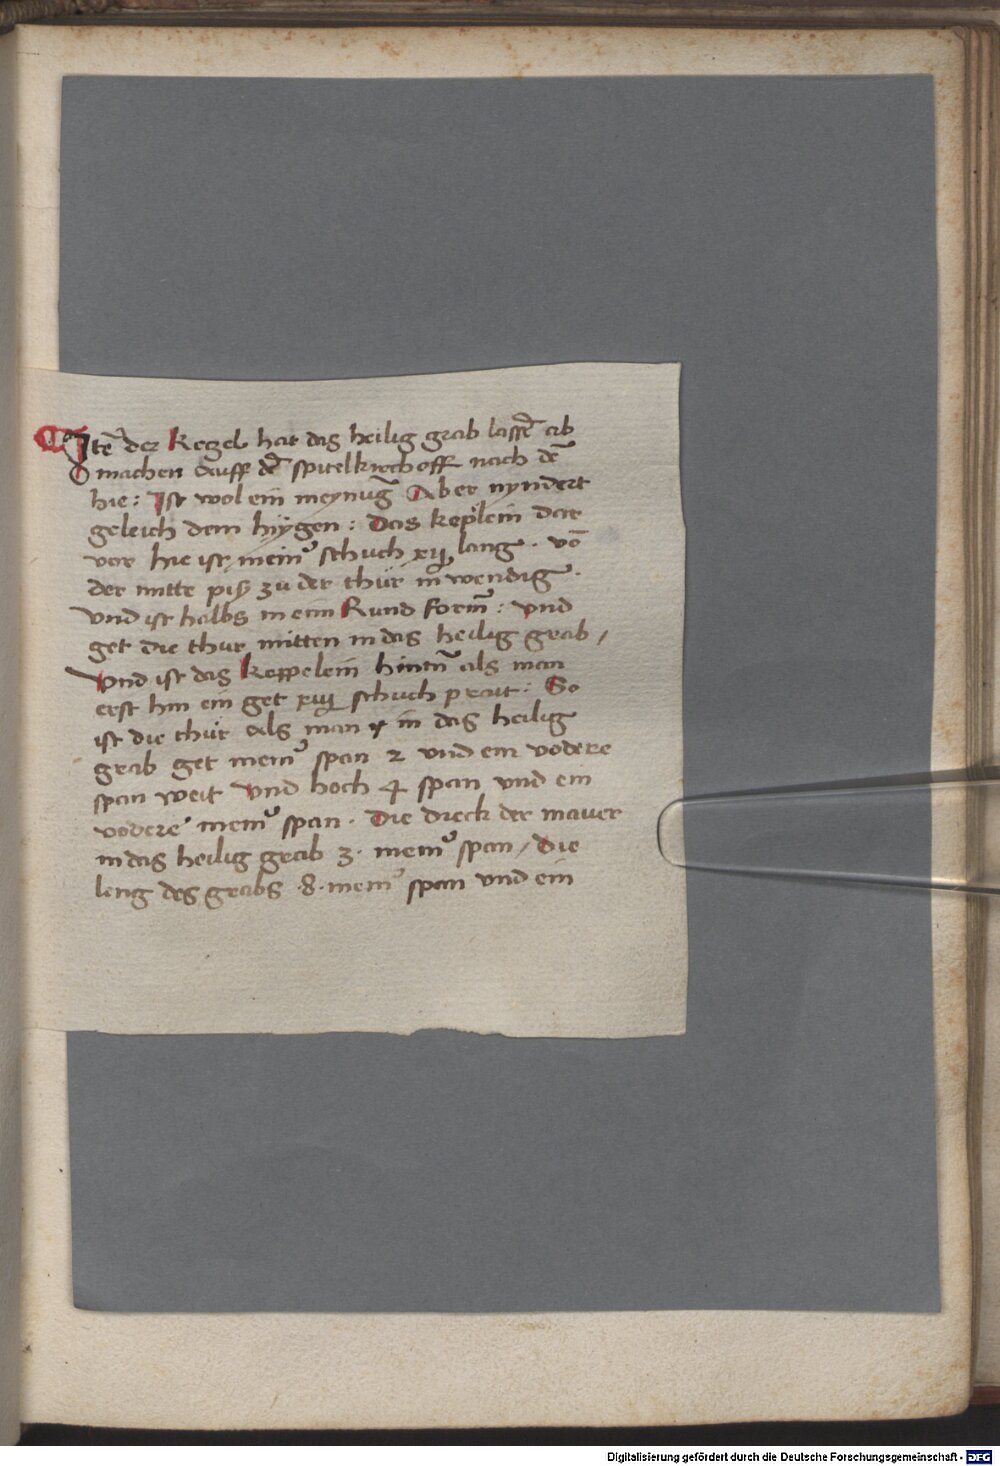 Itē der Keczel hat das heilig grab lassē ab
machen auff dē spitelkirchoff nach dē
hie : Ist wol ein meynūg Aber nyndert
geleich dem hiÿgen : Das keplein dar
vor hie ist meinˀ schuch xij lang . vō
der mitte piß zu der thür inwendig .
Vnd ist halbs in eim Rund form̄ : Vnd
get die thur mitten in das heilig grab /
Vnd ist das keppelein hintn̄ als man
erst hin ein get xiij schuch prait : So
ist die thür als man in das heilig
grab get meinˀ span 2 vnd ein vodere
span weit Vnd hoch 4 span vnd ein
vodere meinˀ span . Die dick der mauer
in das heilig grab 3 . meinˀ span / Die
leng des grabs . 8 . meinˀ span vnd ein
Digitalisierung gefördert durch die Deutsche Forschungsgemeinschaft - DFG